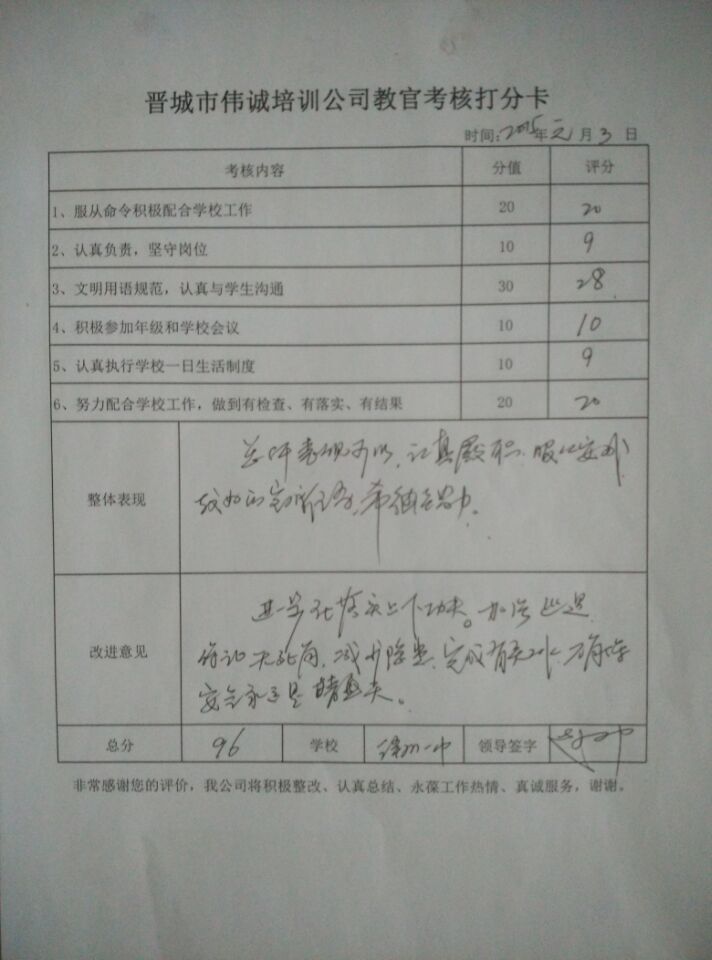 晋城市伟诚培训公司教官考核打分卡
时间:2015年元月3日
考核内容 分值 评分
1、服从命令积极配合学校工作 20 20
2、认真负责，坚守岗位 10 9
3、文明用语规范，认真与学生沟通 30 28
4、积极参加年级和学校会议 10 10
5、认真执行学校一日生活制度 10 9
6、努力配合学校工作，做到有检查、有落实、有结果 20 20
整体表现
总体表现可以，认真履职，服从安排
较好的完成任务，希继续努力。
改进意见
进一步在落实上下功夫。加强巡逻
无死角，减少隐患，完成有关工作，
安全
总分 96 学校 一中 领导签字
非常感谢您的评价，我公司将积极整改、认真总结、永葆工作热情、真诚服务，谢谢。